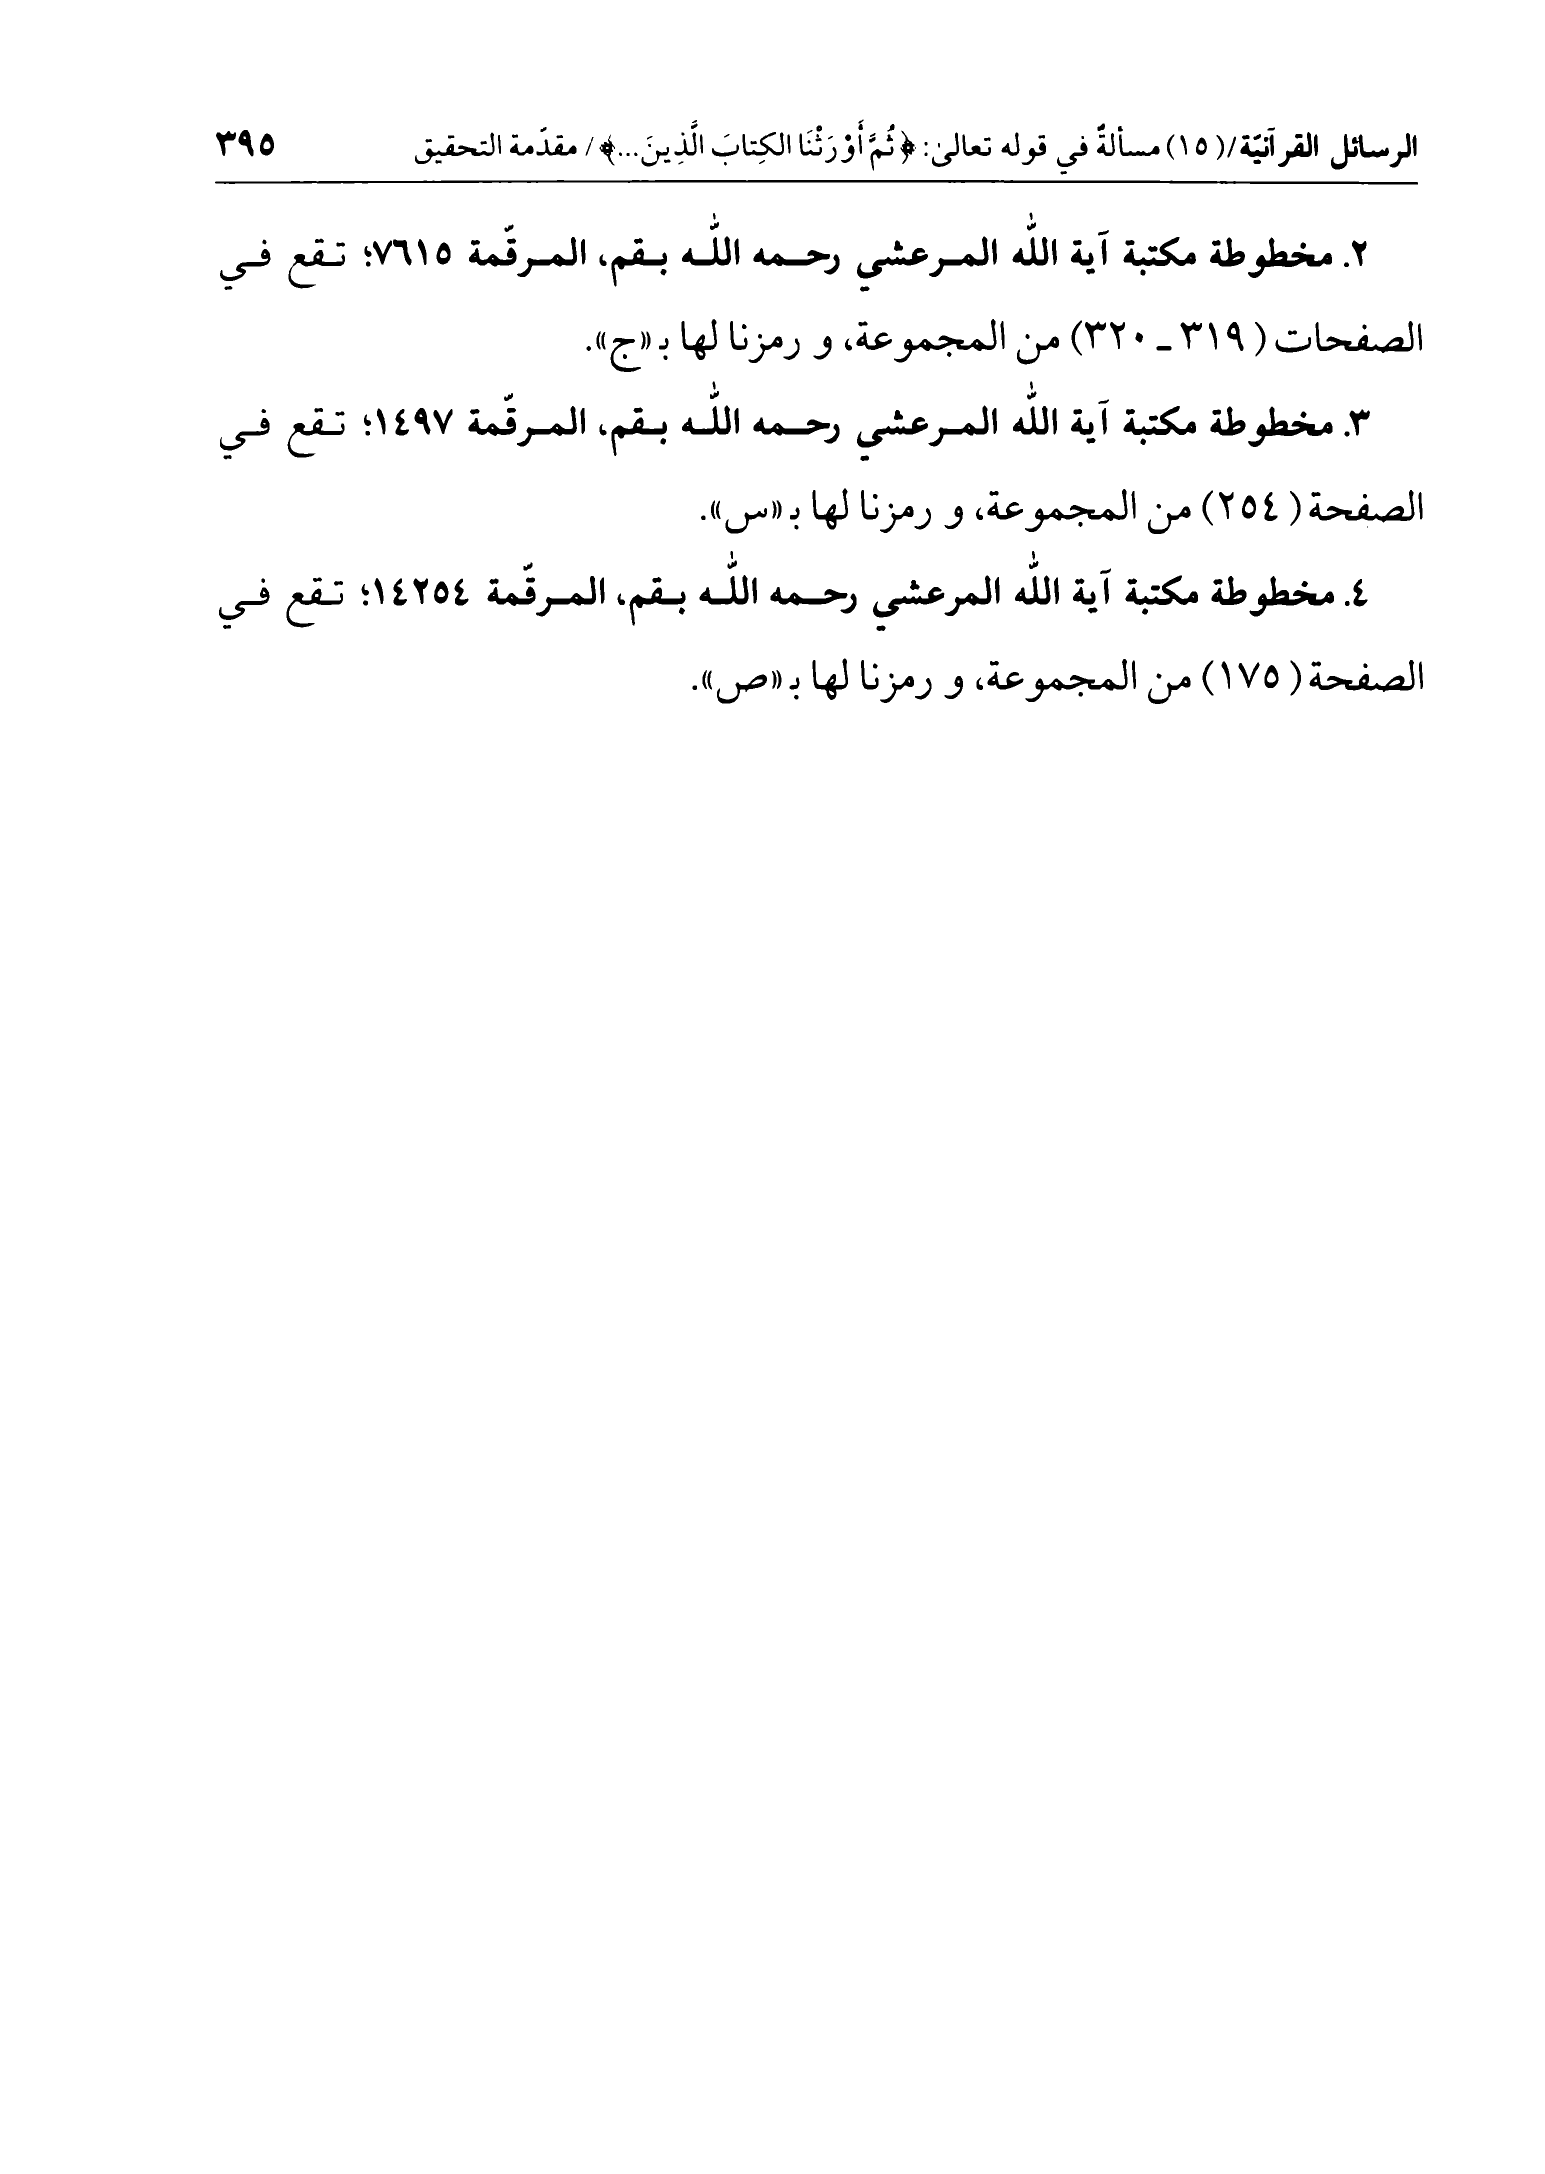 الرسائل القرآنيّة/ (١٥) مسألةٌ في قوله تعالىٰ: ﴿ثُمَّ أَوْرَثْنَا الكِتابَ الَّذِينَ...﴾/ مقدّمة التحقيق ٣٩٥
٢. مخطوطة مكتبة آية اللّٰه المـرعشي رحـمه اللّٰـه بـقم، المـرقّمة ٧٦١٥؛ تـقع فـي
الصفحات (٣١٩ ـ ٣٢٠) من المجموعة، و رمزنا لها بـ«ج».
٣. مخطوطة مكتبة آية اللّٰه المـرعشي رحـمه اللّٰـه بـقم، المـرقّمة ١٤٩٧؛ تـقع فـي
الصفحة (٢٥٤) من المجموعة، و رمزنا لها بـ«س».
٤. مخطوطة مكتبة آية اللّٰه المرعشي رحـمه اللّٰـه بـقم، المـرقّمة ١٤٢٥٤؛ تـقع فـي
الصفحة (١٧٥) من المجموعة، و رمزنا لها بـ«ص».